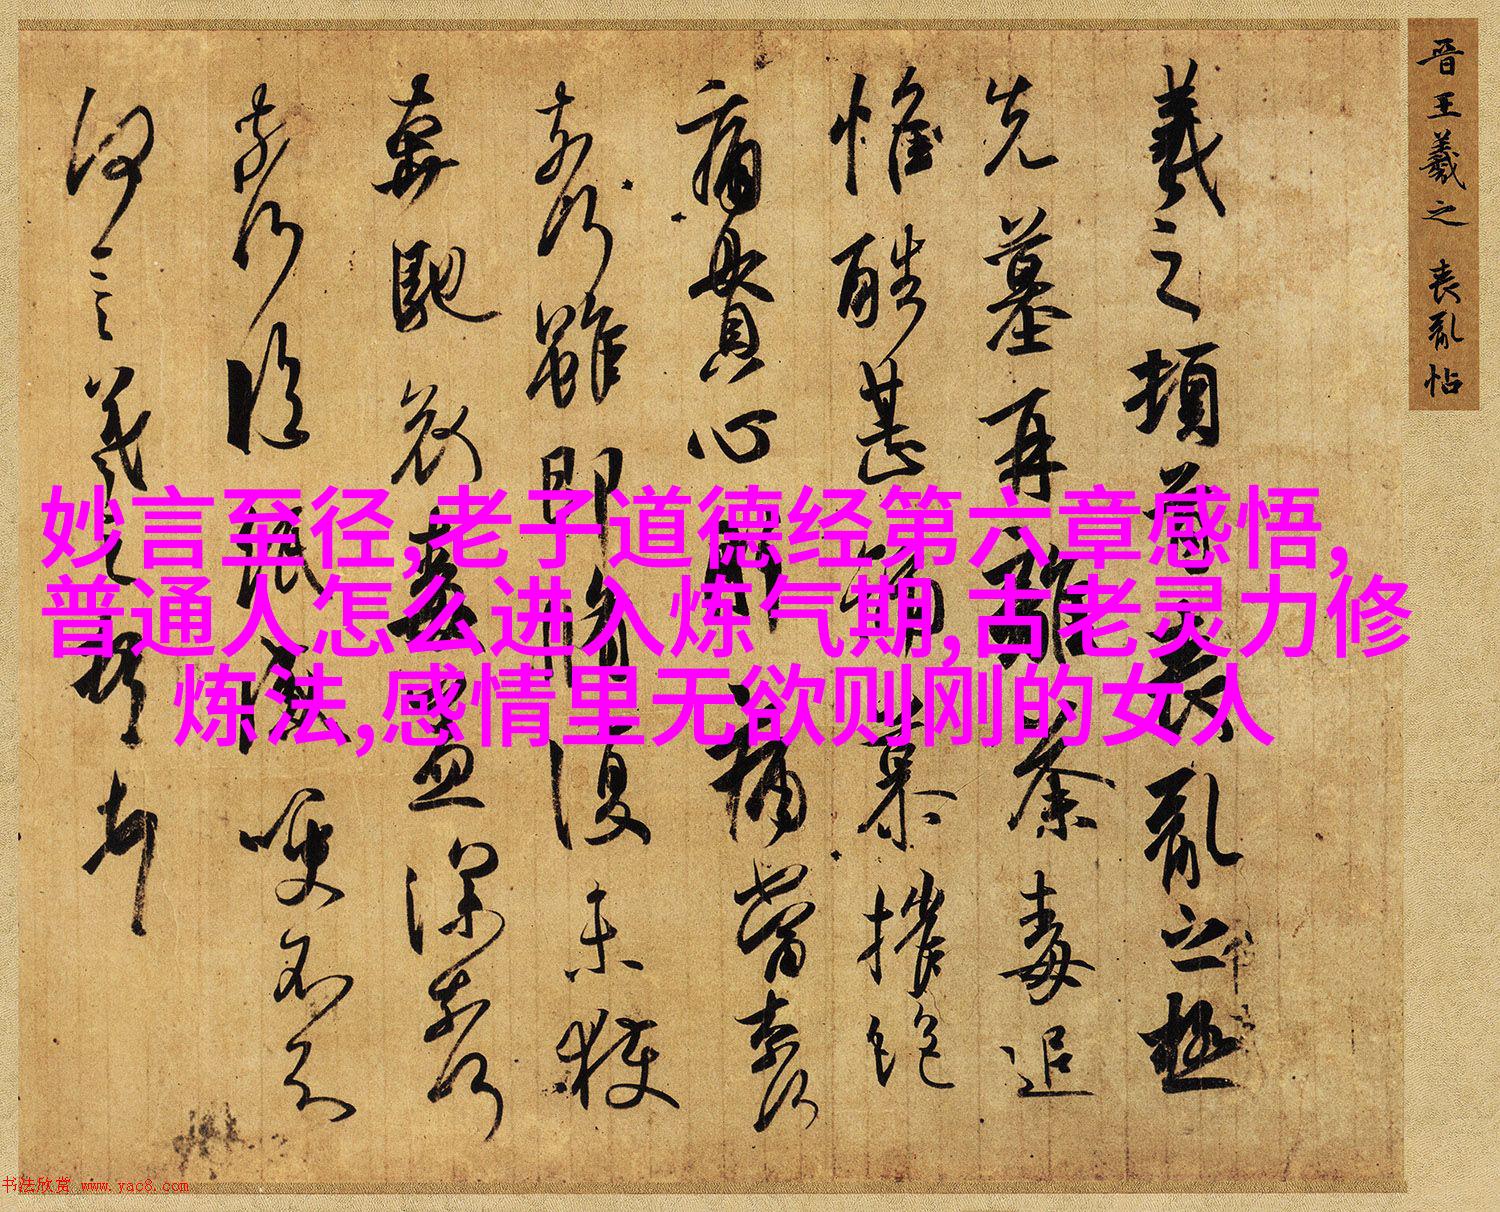 晋王羲之 喪亂帖
羲之頓首喪亂之極
先墓再離荼毒追
惟酷甚號慕摧絶
痛貫心肝痛當奈何
奈何雖即脩復未獲
奔馳哀毒益深奈何
奈何臨紙感哽不知
何言羲之頓首頓首
妙言至径,老子道德经第六章感悟,
普通人怎么进入炼气期,古老灵力修
炼法,感情里无欲则刚的女人
书法欣赏 www.yac8.com